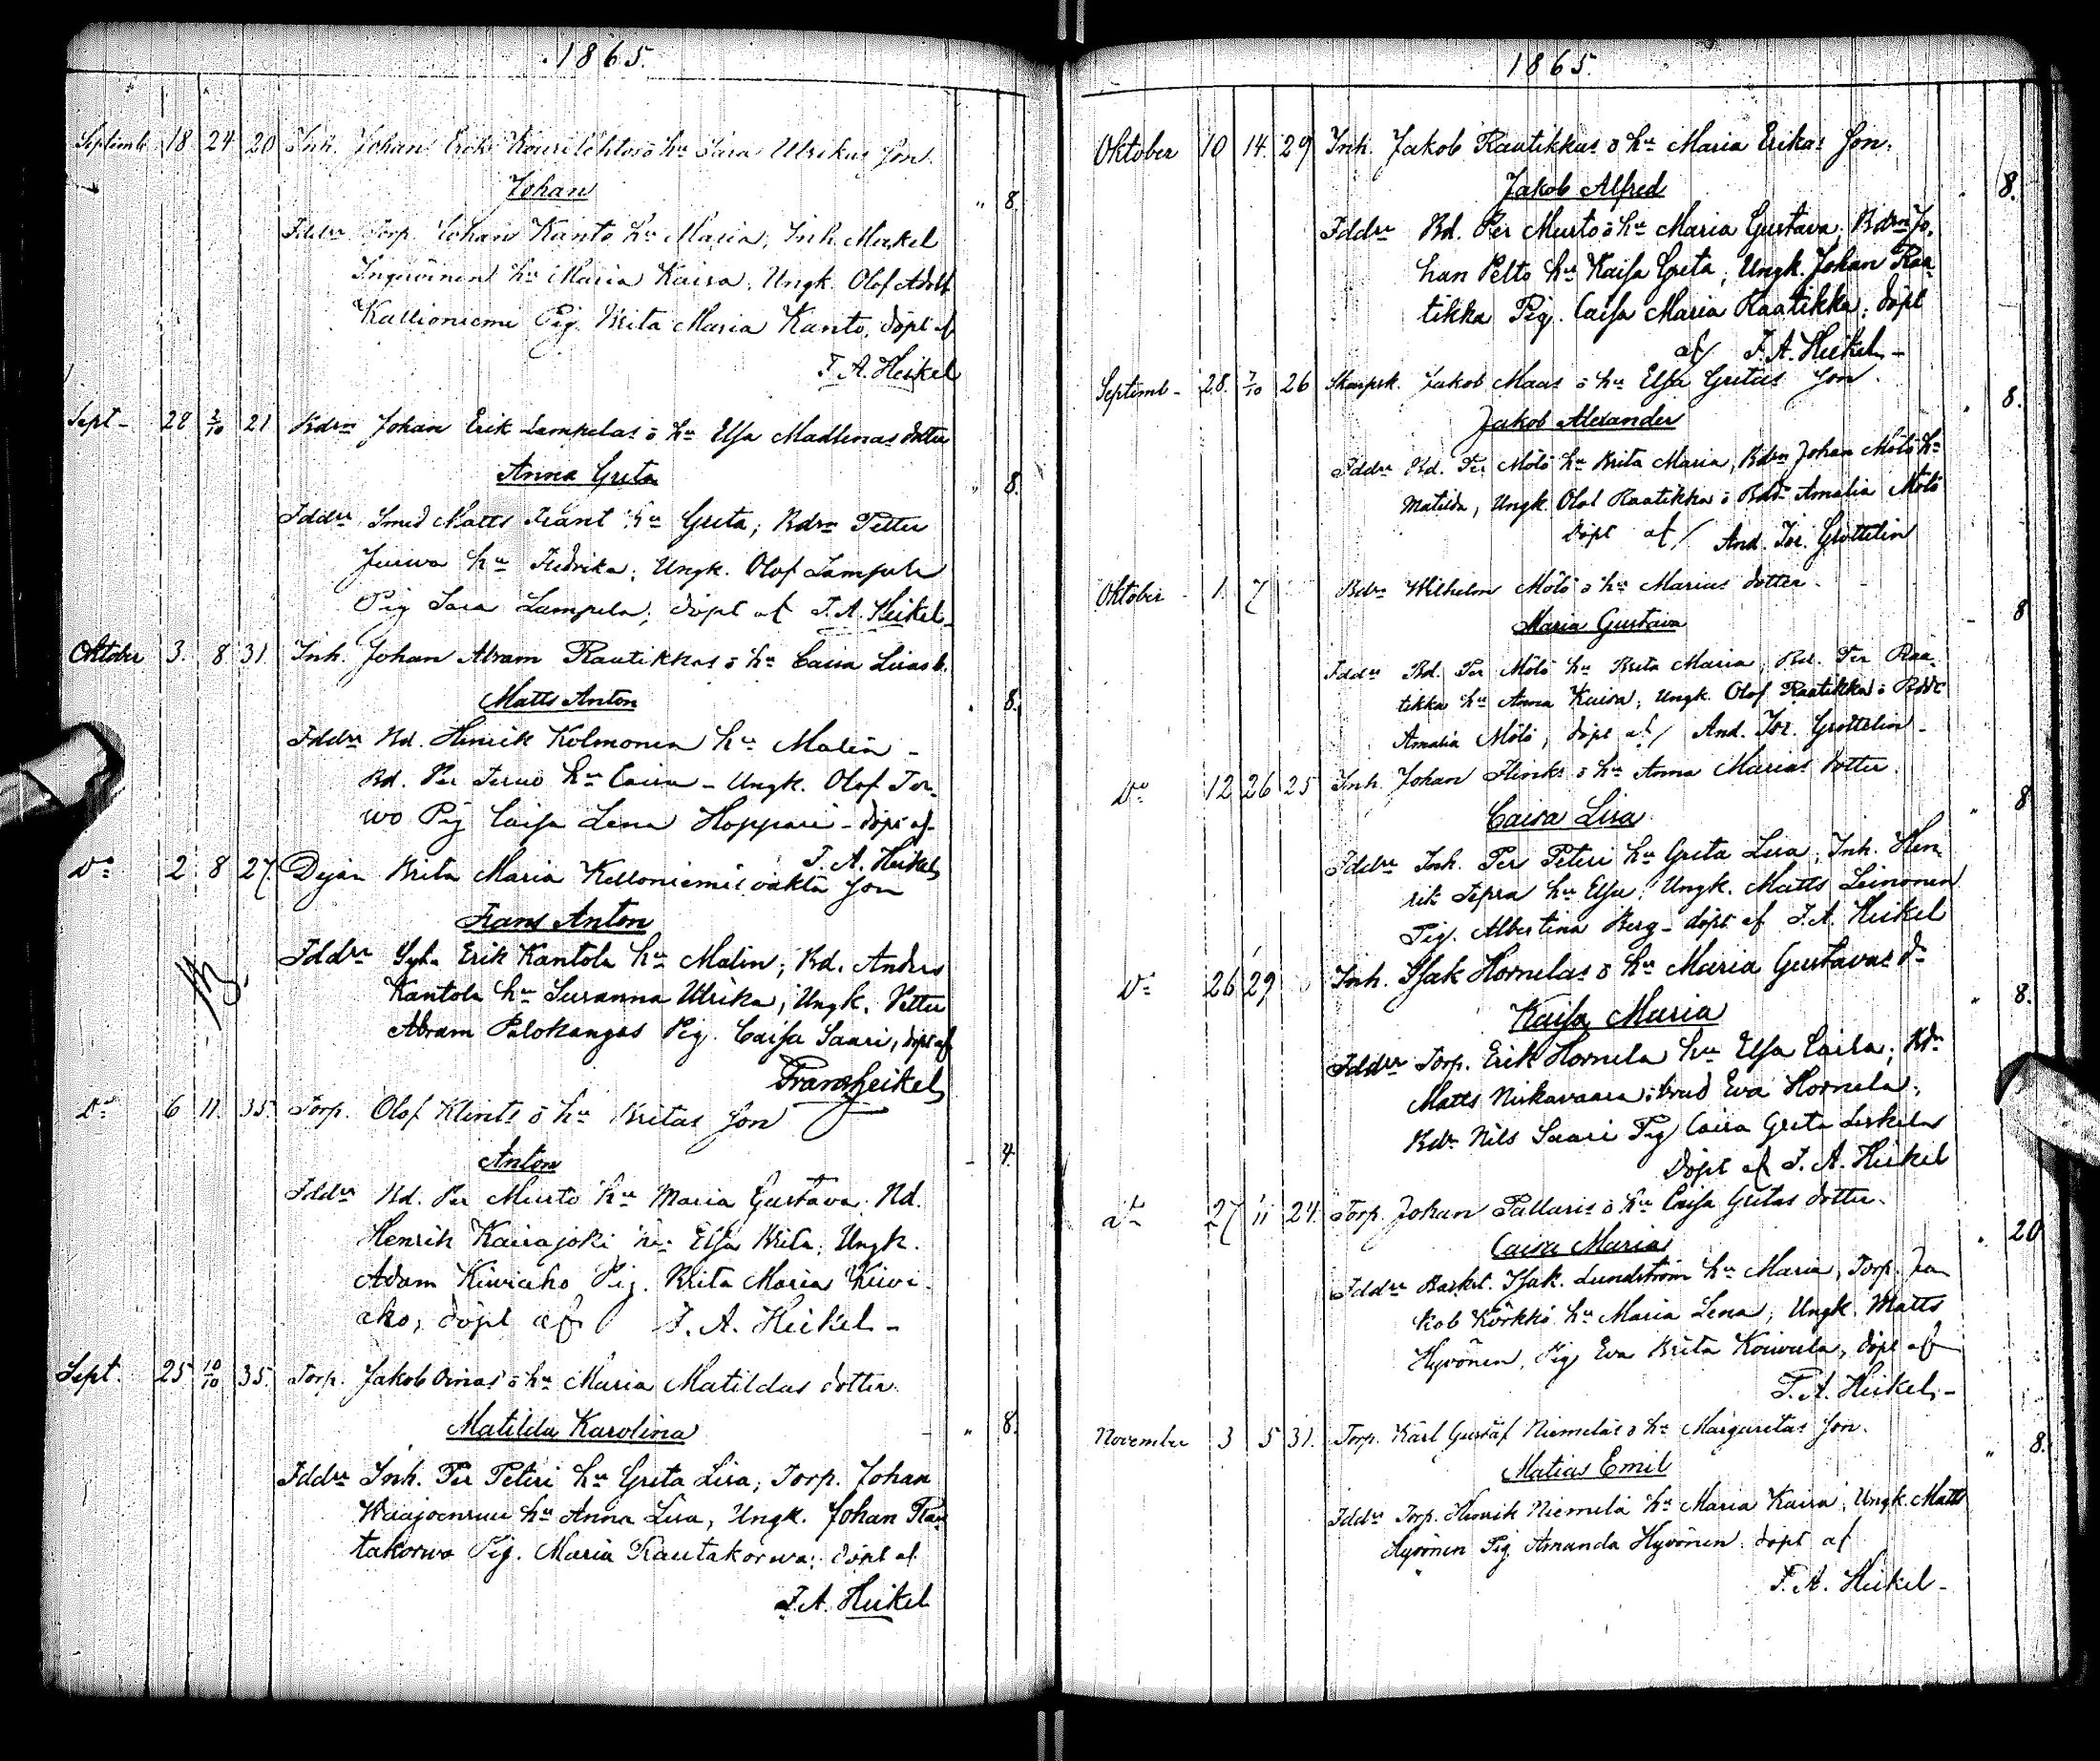 1865.
Septemb. 18 24 20 Inh. Johan Erik ö hu Sara Ulrikas Son.
Johan
" 8.
Fddr Torp. Johan Kanto hu Maria, Inh. Mickel
Inguöinen hu Maria Kaisa, Ungk. Olof Adolf
Kallioniemi Pig. Brita Maria Kanto, döpt af
F. A. Heikel
Sept - 28 2/10 21 Bdrn Johan Erik Lampelas ö hu Elsa Madlenas dotter
Anna Greta
" 8.
Fddr Smed Matts Frant hu Greta; Bdrn Petter
Juuva hu Fredrika; Ungk. Olof Lampela
Pig Sara Lampela; döpt af F. A. Heikel
Oktober 3. 8 31. Inh. Johan Abram Rautikkas ö hu Caisa Lisas b.
Matts Anton
" 8.
Fddr Bd. Henrik Kolmonen hu Malin -
Bd. Per Terwo hu Caisa - Ungk. Olof Ter-
wo Pig Caisa Lena Hoppari - döpt af
F. A. Heikel
Do 2 8 27. Dejan Brita Maria Kelloniemis oäkta Son
Frans Anton
Fddr Erik Kantola hu Malin; Bd. Anders
Kantola hu Susanna Ulrika; Ungk. Petter
Abram Palokangas Pig. Caisa Saari, döpt af
Frans Heikel
Do 6 11. 35. Torp. Olof Klints ö hu Britas Son
Anton
- 4.
Fddr Bd. Per Murto hu Maria Gustava, Bd.
Henrik Kairajoki hu Elsa Brita, Ungk.
Adam Kiwiaho Pig. Brita Maria Kiwi-
aho, döpt af F. A. Heikel -
Sept. 25 10/10 35. Torp. Jakob Oinas ö hu Maria Matildas dotter.
Matilda Karolina
" 8.
Fddr Inh. Per Peteri hu Greta Lisa, Torp. Johan
Waajoensuu hu Anna Lisa, Ungk. Johan Rau
takorwa Pig. Maria Rautakorwa; döpt af
F. A. Heikel
1865.
Oktober 10 14. 29 Inh. Jakob Raatikkas ö hu Maria Erikas Son.
Jakob Alfred
" 8.
Fddr Bd. Per Murto ö hu Maria Gustava, Bdrn Jo-
han Pelto hu Kaisa Greta; Ungk. Johan Raa
tikka Pig. Caisa Maria Raatikka; döpt
af F. A. Heikel -
Septemb - 28. 7/10 26 Skarpsk. Jakob Maas ö hu Elsa Gretas Son.
Jakob Alexander
" 8.
Fddr Bd. Per Mölö hu Brita Maria, Bdrn Johan Mölö hu
Matilda, Ungk. Olof Raatikka ö Bdd. Amalia Mölö
döpt af And. Joz. Grottelin
Oktober - 1. 7 Bdrn Wilhelm Mölö ö hu Marias dotter -
Maria Gustava
- 8
Fddr Bd. Per Mölö hu Brita Maria, Bd. Per Raa-
tikka hu Anna Kaisa, Ungk. Olof Raatikka ö Bddr
Amalia Mölö, döpt af And. Joz. Grottelin -
Do 12 26 25 Inh. Johan Flinks ö hu Anna Marias dotter.
Caisa Lisa
" 8
Fddr Inh. Per Peteri hu Greta Lisa, Inh. Hen-
rik Sipra hu Elsa, Ungk. Matts Leinonen
Pig. Albertina Berg - döpt af F. A. Heikel
Do 26 29 Inh. Isak Hornelas ö hu Maria Gustavas dr
Kaisa Maria
" 8.
Fddr Torp. Erik Hornela hu Elsa Caisa, Bdr
Matts Niskavaara, brud Eva Hornela,
Bdr Nils Saari Pig Caisa Greta Leskelas
Döpt af F. A. Heikel
do 27 11 24. Torp. Johan Pallaris ö hu Caisa Gretas dotter.
Caisa Maria
" 20
Fddr Backst. Isak Lundström hu Maria, Torp. Ja-
kob Körkkö hu Maria Lena, Ungk. Matts
Hyvönen, Pig Eva Brita Koivula, döpt af
F. A. Heikel -
November 3 5 31. Torp. Karl Gustaf Niemeläs ö hu Margaretas Son.
Matias Emil
" 8.
Fddr Torp. Henrik Niemelä hu Maria Kaisa, Ungk. Matts
Hyvönen Pig. Amanda Hyvönen, döpt af
F. A. Heikel -